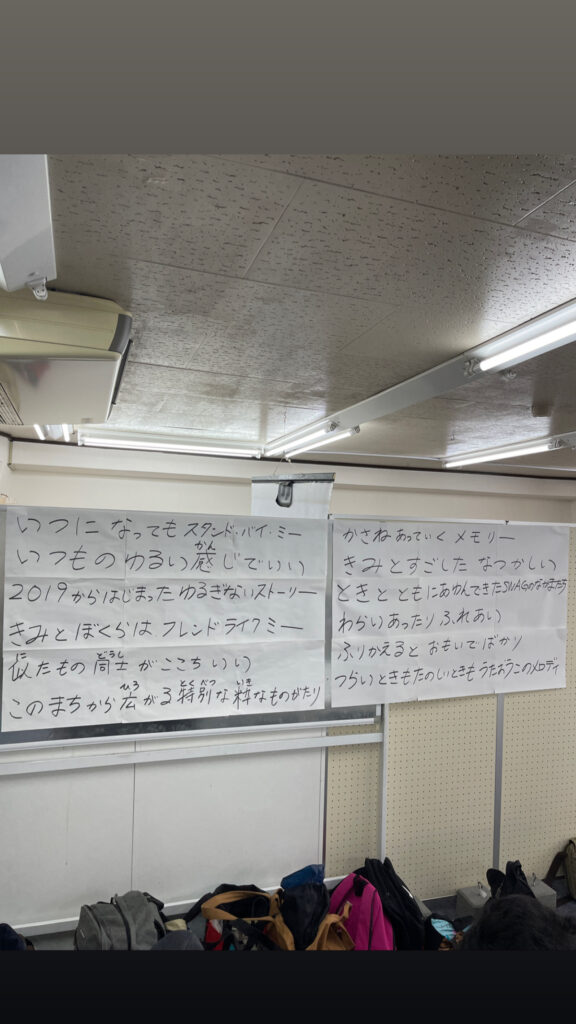 いつに なっても スタンド・バイ・ミー
いつもの ゆるい 感じでいい
かん
2019からはじまった ゆるぎないストーリー
きみと ぼくらは フレンド ライク ミー
似たもの 同士 が ここち いい
に どうし
このまちから 広がる 特別な 粋なものがたり
ひろ とくべつ いき
かさね あっていく メモリー
きみとすごした なつかしい
ときと ともにあゆんできたSWAGのなかまたち
わらいあったり ふれあい
ふりかえると おもいでばかり
つらいときもたのしいときも うたおうこのメロディ